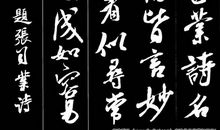 業詩名
皆言妙
看似尋常
成如容易
題張司業詩